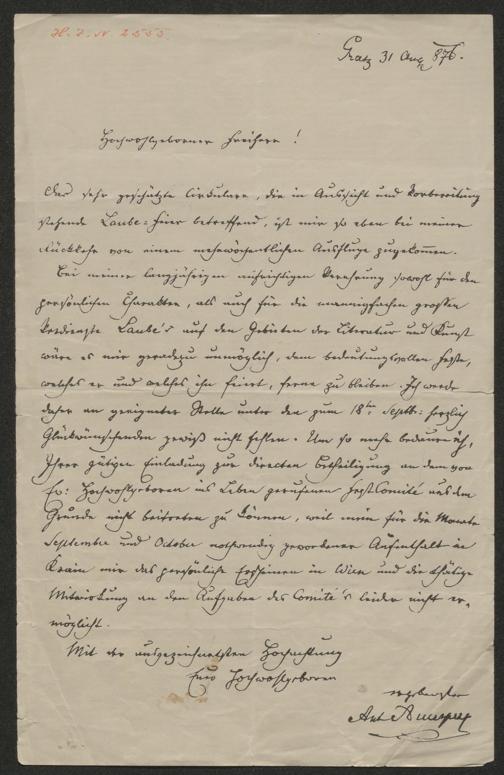 H. I. N. 2555.
Gratz 31 Aug 876.
Hochwohlgeborner Freiherr!
Das sehr geschätzte Circulare, die in Aussicht und Vorbereitung
stehende Laube-Feier betreffend, ist mir so eben bei meiner
Rückkehr von einem mehrwöchentlichen Ausfluge zugekommen.
Bei meiner langjährigen aufrichtigen Verehrung sowohl für den
persönlichen Charakter, als auch für die mannigfachen großen
Verdienste Laube's auf den Gebieten der Literatur und Kunst
wäre es mir geradezu unmöglich, dem bedeutungsvollen Feste,
welches er und welches ihn feiert, ferne zu bleiben. Ich werde
daher an geeigneter Stelle unter den zum 18ten Septb: herzlich
Glückwünschenden gewiß nicht fehlen. Um so mehr bedaure ich,
Ihrer gütigen Einladung zur directen Betheiligung an dem von
Ew: Hochwohlgeboren ins Leben gerufenen Festcomité aus dem
Grunde nicht beitreten zu können, weil mein für die Monate
September und October nothwendig gewordener Aufenthalt in
Krain mir das persönliche Erscheinen in Wien und die thätige
Mitwirkung an den Aufgaben des Comité's leider nicht er-
möglicht.
Mit der ausgezeichnetsten Hochachtung
Euer Hochwohlgeboren
ergebenster
Ant Auersperg